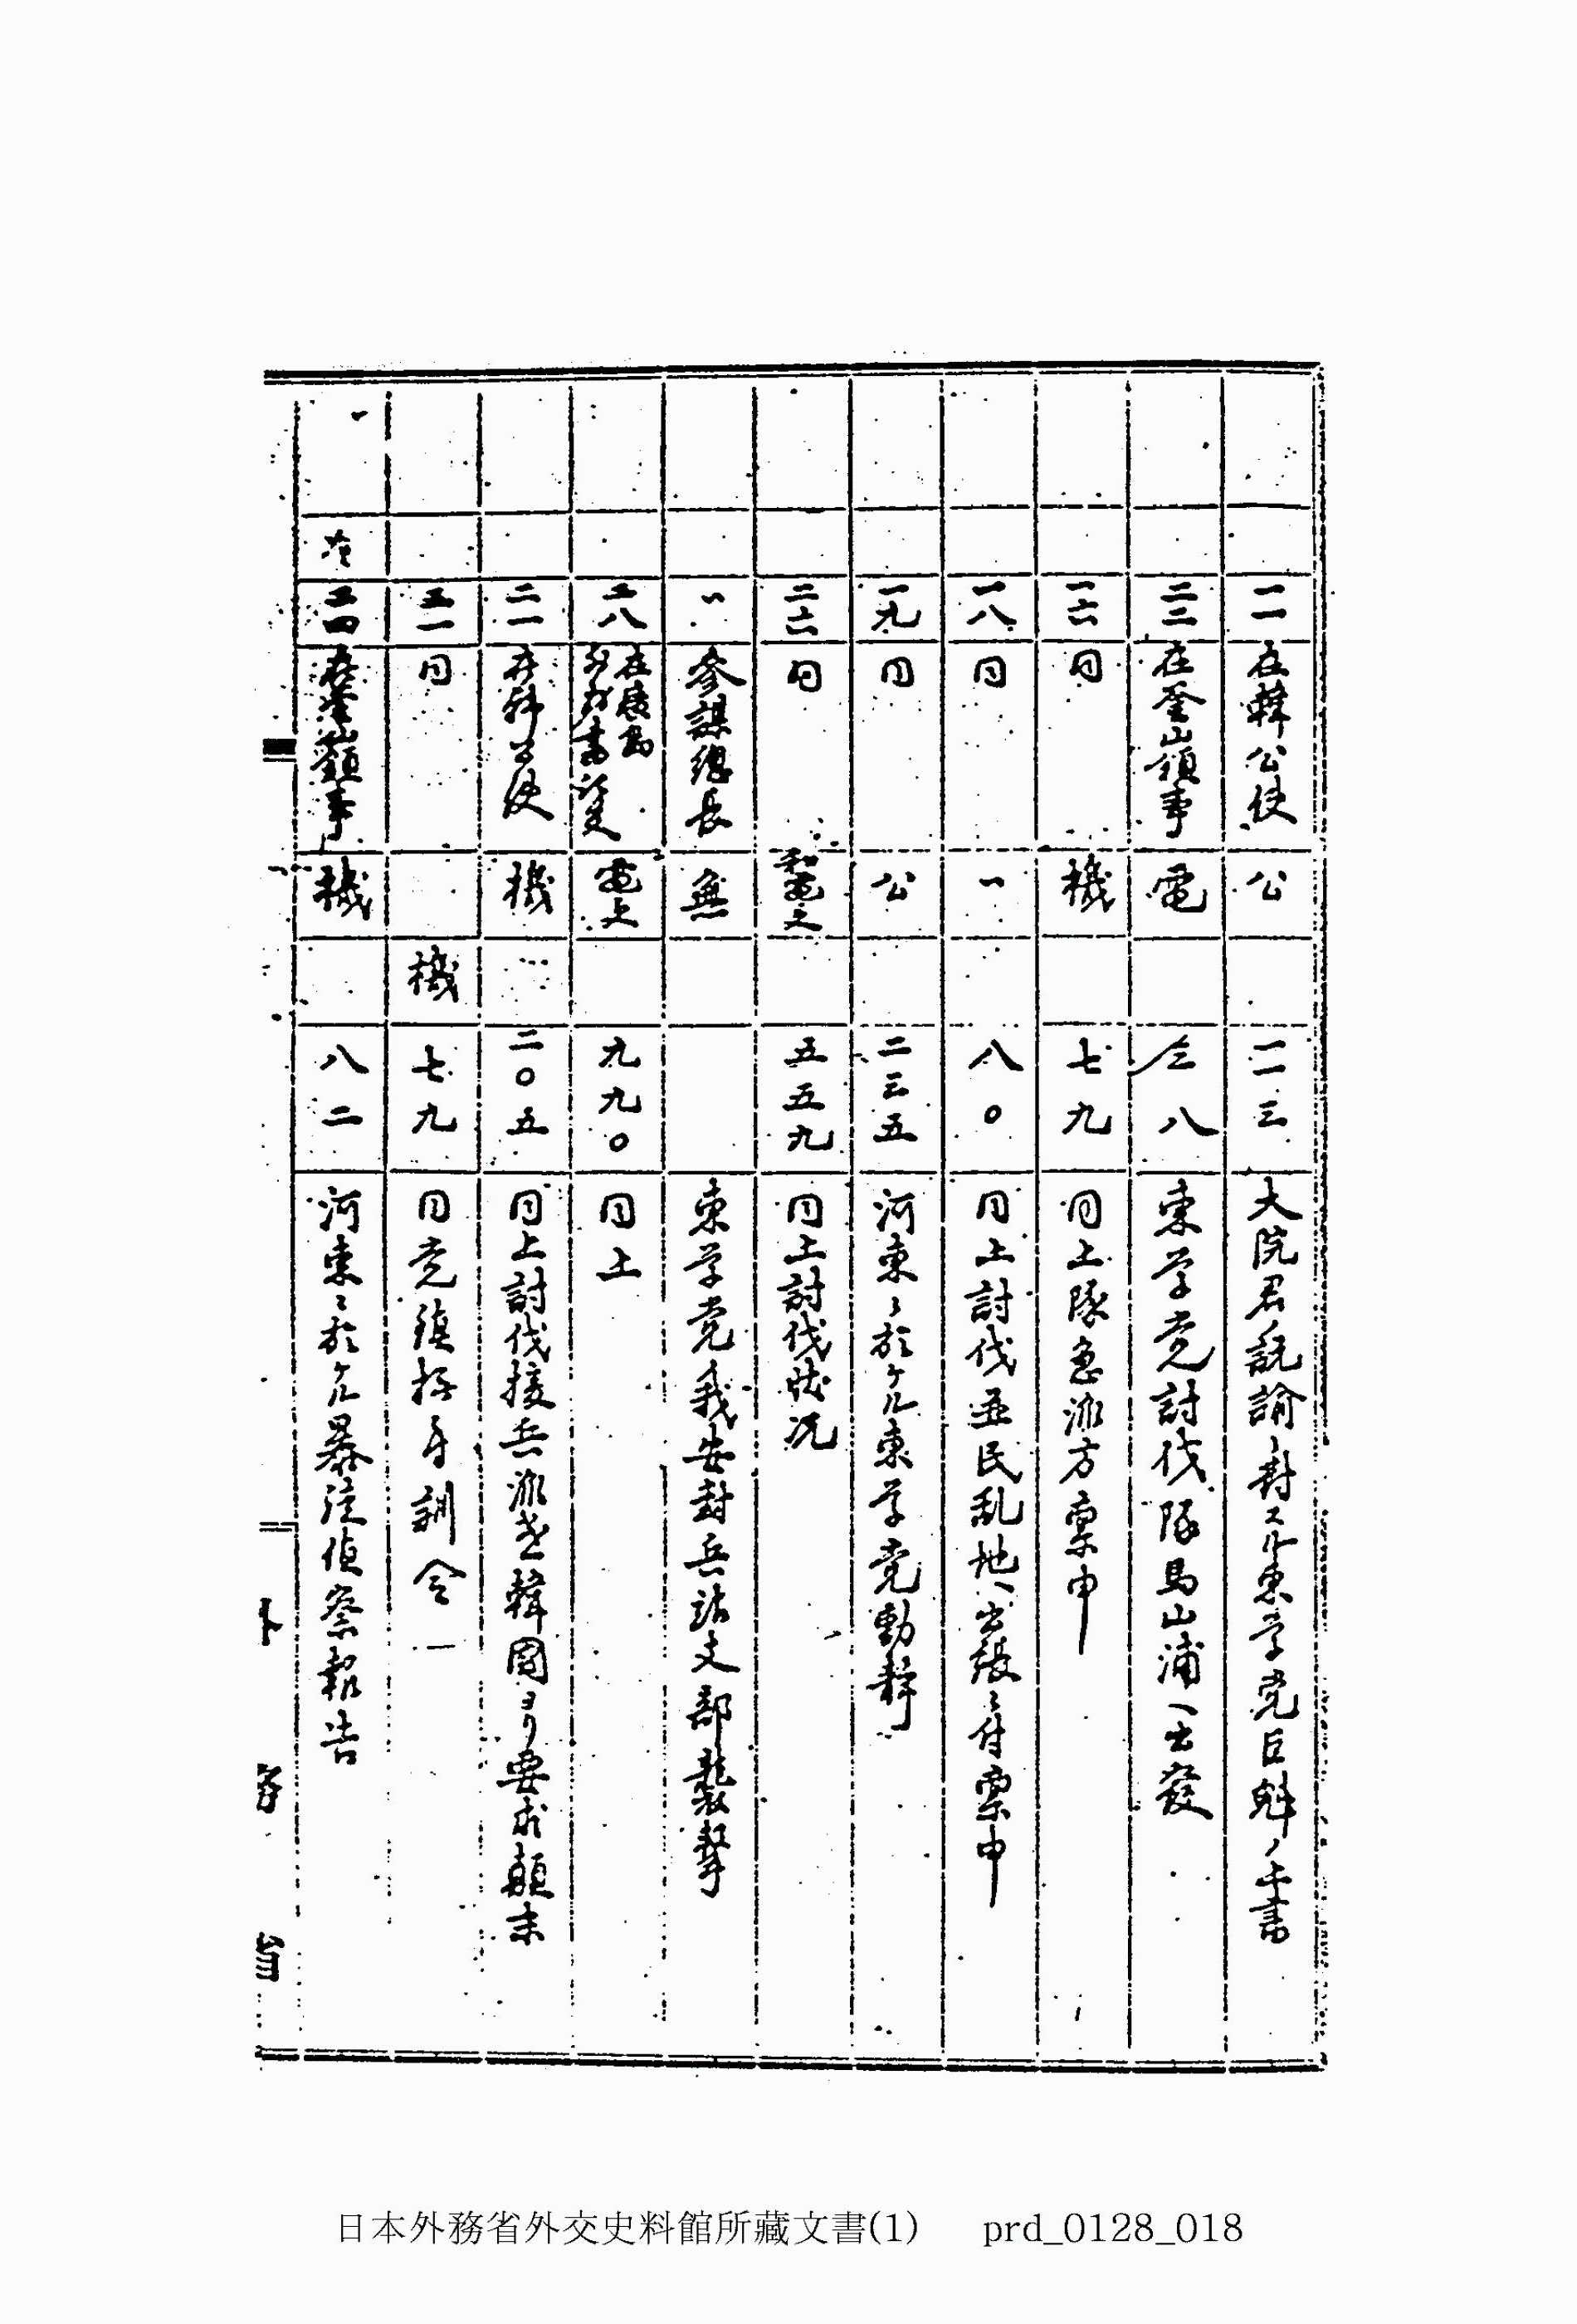 一一 在韓公使 公 一一三 大院君ノ諭ニ対スル東学党巨魁ノ上書
二三 在釜山領事 電 三八 東学党討伐隊馬山浦ヘ出発
一六 同 機 七九 同上隊急派方稟申
一八 同 一 八〇 同上討伐並民乱地ヘ出張ニ付稟申
一九 同 公 二三五 河東ニ於ケル東学党動静
二六 同 五五九 同上討伐状况
一 参謀總長 無 東学党我安封兵站支部襲撃
二八 在廣島 書記官 電上 九九〇 同上
二一 在韓公使 機 二〇五 同上討伐援兵派遣韓國ヨリ要求顛末
五一 同 機 七九 同党鎮撫方訓令
二四 在釜山領事 機 八二 河東ニ於ケル暴徒偵察報告
外務省
日本外務省外交史料館所藏文書(1) prd_0128_018